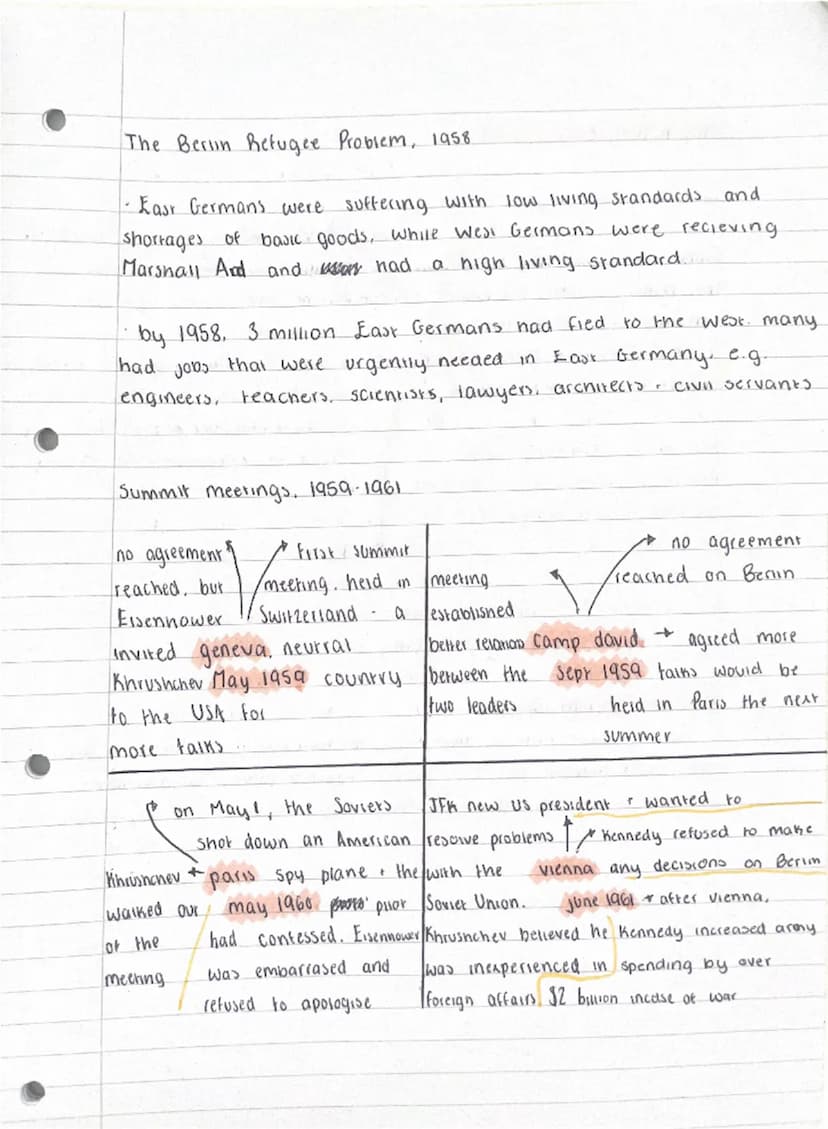 The Berlin Refugee Problem, 1958
· East Germans were suffering with low living standards and
shortages of basic goods, while West Germans were recieving
Marshall Aid and had a high living standard.
· by 1958, 3 million East Germans had fled to the West. many
had jobs that were urgently needed in East Germany. e.g.
engineers, teachers, scientists, lawyers, architects + civil servants
Summit meetings, 1959-1961
no agreement
reached, but
Eisenhower
invited
Khrushchev
to the USA for
more talks
First summit
meeting, held in
Switzerland - a
neutral
country
geneva,
May 1959
meeting
established
better relations
between the
two leaders
camp david
Sept 1959
no agreement
reached on Berlin
→ agreed more
talks would be
held in Paris the next
summer
Khrushchev
walked out
of the
meeting
paris
may 1960
on May 1, the Soviets
shot down an American
spy plane + the
pilot
had confessed. Eisenhower
was embarrased and
refused to apologise
JFK new US president + wanted to
resolve problems
with the
Soviet Union.
Khrushchev believed he
was inexperienced in
foreign affairs
vienna
june 1961
Kennedy refused to make
any decisions on Berlin
after vienna,
Kennedy increased army
spending by over
$2 billion incase of war